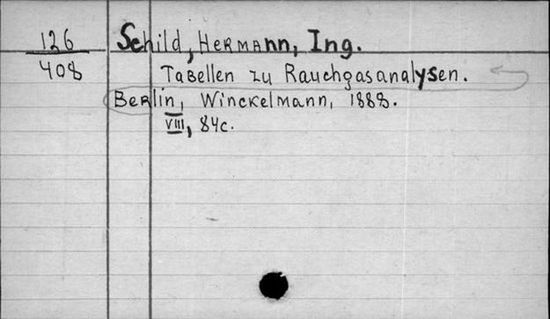 126
408
Schild, Hermann, Ing.
Tabellen zu Rauchgasanalysen.
Berlin, Winckelmann, 1888.
VIII, 84c.